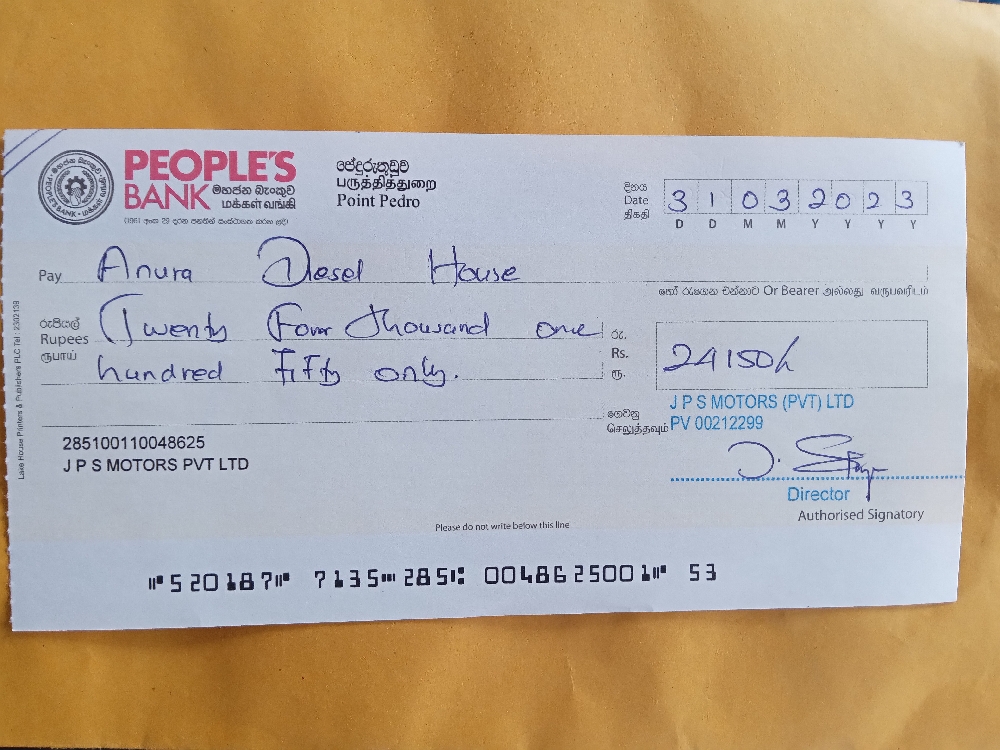 PEOPLE'S
BANK මහජන බැංකුව
மக்கள் வங்கி
(1961 අංක 29 දරන පනතින් සංස්ථාගත කරන ලදි)
පේදුරුතුඩුව
பருத்தித்துறை
Point Pedro
දිනය
Date
திகதி
3 1 0 3 2 0 2 3
D D M M Y Y Y Y
Pay Anura Diesel House
හෝ රැගෙන එන්නාට Or Bearer அல்லது வருபவரிடம்
රුපියල්
Rupees
ரூபாய்
Twenty Four thousand one
hundred Fifty only.
රු.
Rs.
ரூ.
24150/-
ගෙවනු
செலுத்தவும்
J P S MOTORS (PVT) LTD
PV 00212299
285100110048625
J P S MOTORS PVT LTD
Director
Authorised Signatory
Please do not write below this line
Lake House Printers & Publishers PLC Tel : 2302139
⑈520187⑈ 7135⑉285⑆ 0048625001⑈ 53